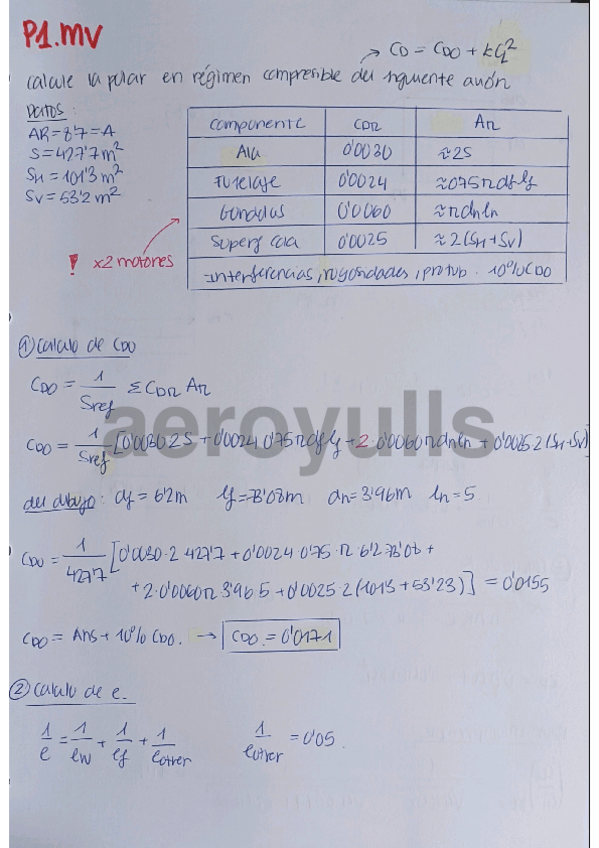 P1.MV
→ CD = CD0 + kCL²
calcule la polar en régimen compresible del siguiente avión
DATOS:
AR=8'7=A
S=427'7m²
SH=101'3m²
SV=53'2m²
componente CDπ Aπ
Ala 0'0030 ≈2S
Fuselaje 0'0024 ≈0'75πdflf
Gondolas 0'0060 ≈πdnln
Superf cola 0'0025 ≈2(SH+SV)
Interferencias, rugosidades, protub. 10%CD0
! x2 motores
① Calculo de CD0
CD0 = 1/Sref Σ CDπ Aπ
CD0 = 1/Sref [0'0030 2S + 0'0024 0'75πdflf + 2·0'0060πdnln + 0'0025 2(SH+SV)
aeroyulls
del dibujo: df=6'2m lf=73'08m dn=3'96m ln=5
CD0 = 1/427'7 [0'0030·2 427'7 + 0'0024 0'75·π 6'2·73'08 +
+2·0'0060π 3'96 5 + 0'0025·2(101'3+53'23)] = 0'0155
CD0 = Ans + 10% CD0. → CD0 = 0'0171
② Calculo de e.
1/e = 1/ew + 1/ef + 1/eother 1/eother = 0'05.